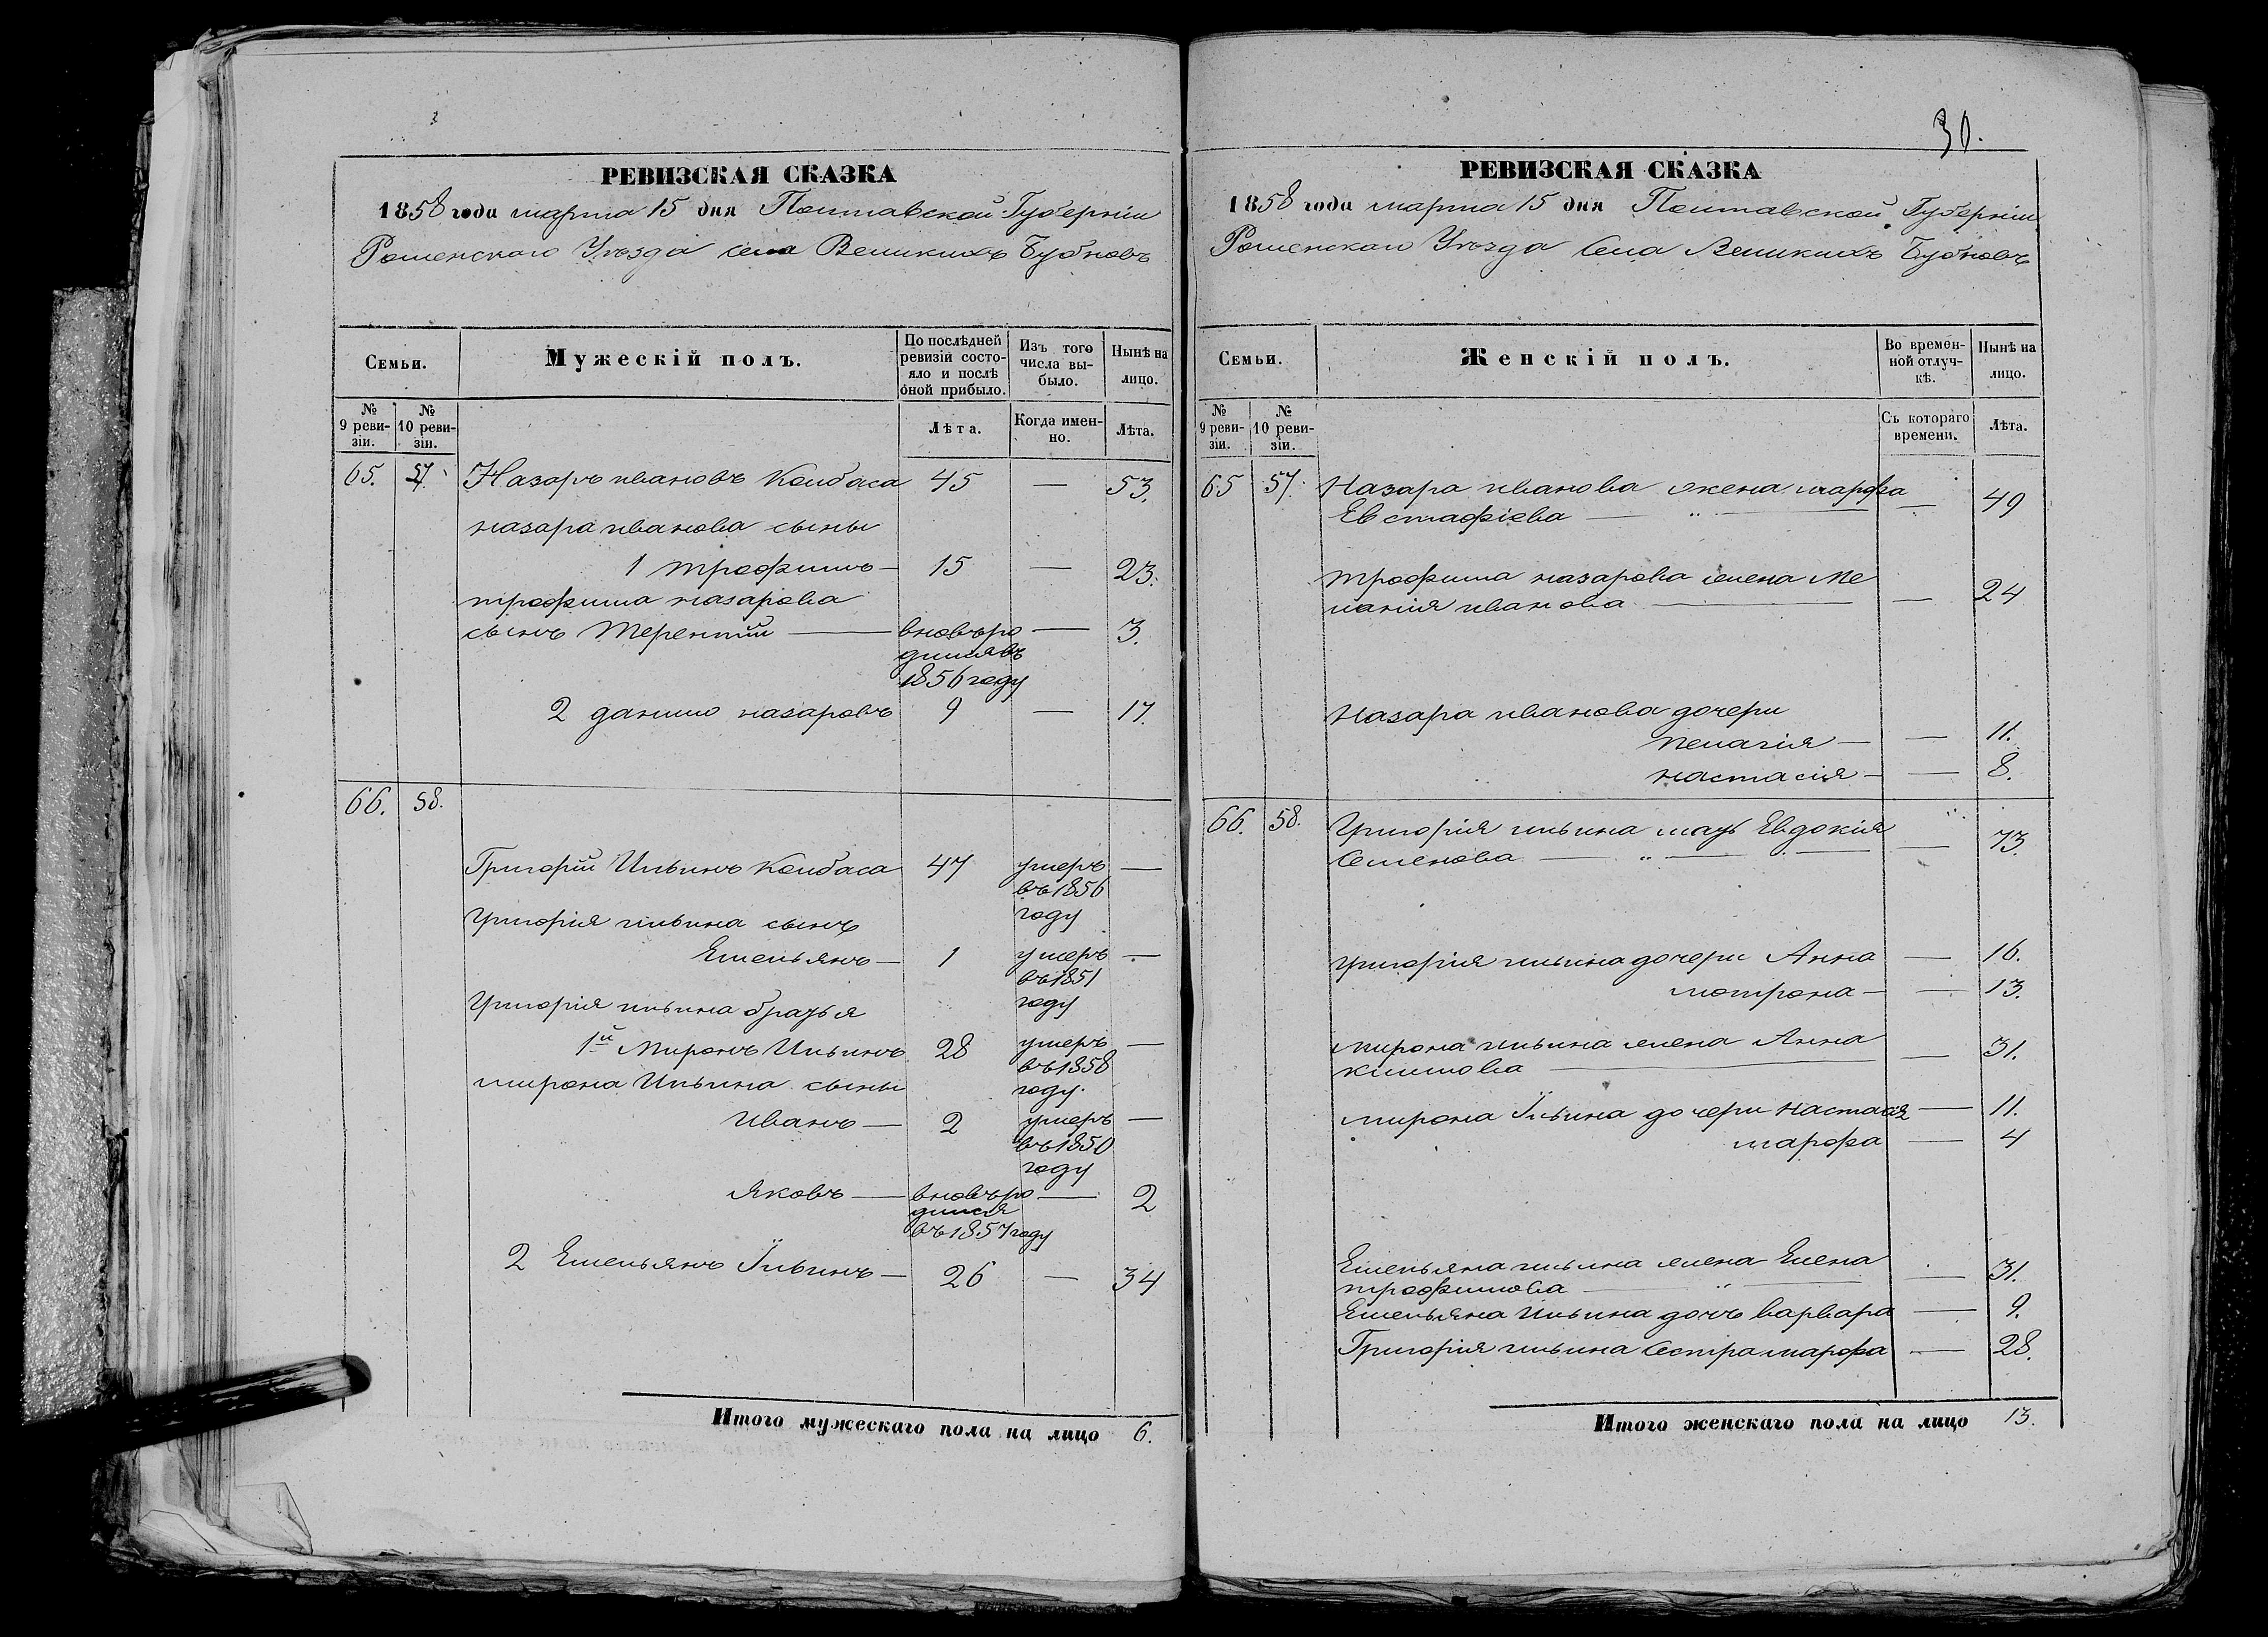 РЕВИЗСКАЯ СКАЗКА
1858 года марта 15 дня Полтавской Губерніи
Роменскаго Уѣзда села Великихъ Бубновъ
Семьи.
Мужескій полъ.
По послѣдней ревизіи состояло и послѣ оной прибыло.
Изъ того числа выбыло.
Нынѣ на лицо.
№ 9 ревизіи.
№ 10 ревизіи.
Лѣта.
Когда именно.
Лѣта.
65. 57. Назаръ ивановъ Колбаса 45 — 53.
назара иванова сыны
1 трофимъ — 15 — 23.
трофима назарова
сынъ Терентій — вновь ро — 3.
дился въ
1856 году
2 данило назаровъ 9 — 17.
66. 58.
Григорій Ильинъ Колбаса 47 умеръ —
въ 1856
году
Григорія ильина сынъ
Емельянъ — 1 умеръ —
въ 1851
году
Григорія ильина братья
1й Миронъ Ильинъ 28 умеръ —
въ 1858
году.
мирона Ильина сыны
Иванъ — 2 умеръ —
въ 1850
году
Яковъ — вновь ро — 2
дился
въ 1857 году
2 Емельянъ Їльинъ — 26 — 34
Итого мужескаго пола на лицо 6.
30.
РЕВИЗСКАЯ СКАЗКА
1858 года марта 15 дня Полтавской Губерніи
Роменскаго Уѣзда Села Великихъ Бубновъ
Семьи.
Женскій полъ.
Во временной отлучкѣ.
Нынѣ на лицо.
№ 9 ревизіи.
№ 10 ревизіи.
Съ котораго времени.
Лѣта.
65 57. Назара иванова жена марфа
Евстафіева — " — — 49
трофима назарова жена Ме
ланія иванова — — 24
Назара иванова дочери
пелагія — — 11.
настасія — — 8.
66. 58. Григорія ильина мать Евдокія
Семенова — " — — 73.
григорія ильина дочери Анна — 16.
мотрона — — 13.
мирона ильина жена Анна
климова — — 31.
мирона Їльина дочери настася — 11.
марфа — 4
Емельяна ильина жена Елена
трофимова — " — — 31.
Емельяна Ильина дочь варвара — 9.
Григорія ильина Сестра марфа — 28.
Итого женскаго пола на лицо 13.